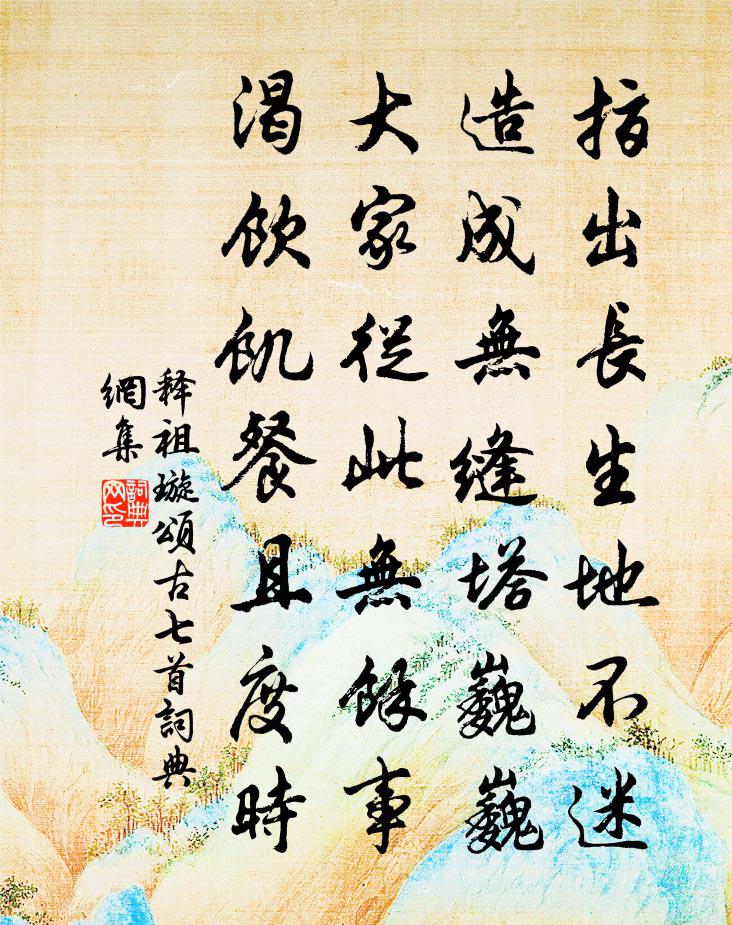 指出長生地不迷
造成無縫塔巍巍
大家從此無餘事
渴飲飢餐且度時
释祖璇頌古七首詞典
網集
詞典
网印